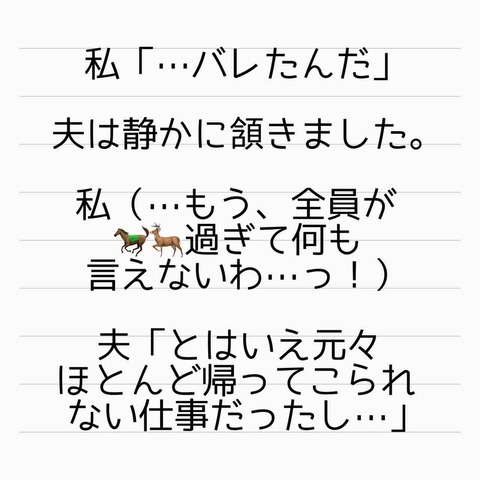 私「…バレたんだ」
夫は静かに頷きました。
私（…もう、全員が
🐎🦌過ぎて何も
言えないわ…っ！）
夫「とはいえ元々
ほとんど帰ってこられ
ない仕事だったし…」